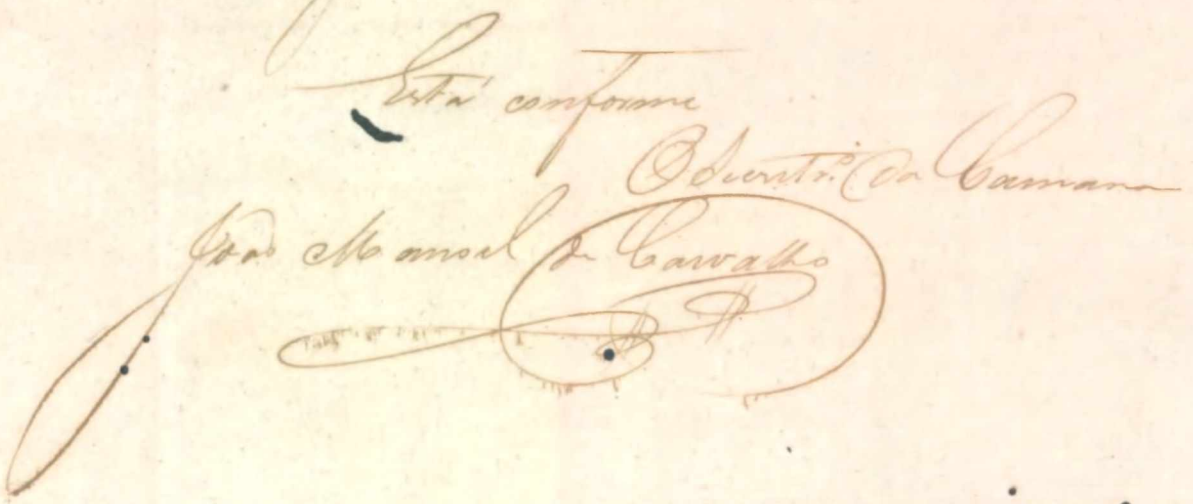 Está conforme
O Secretr.º da Camara
João Manoel de Carvalho